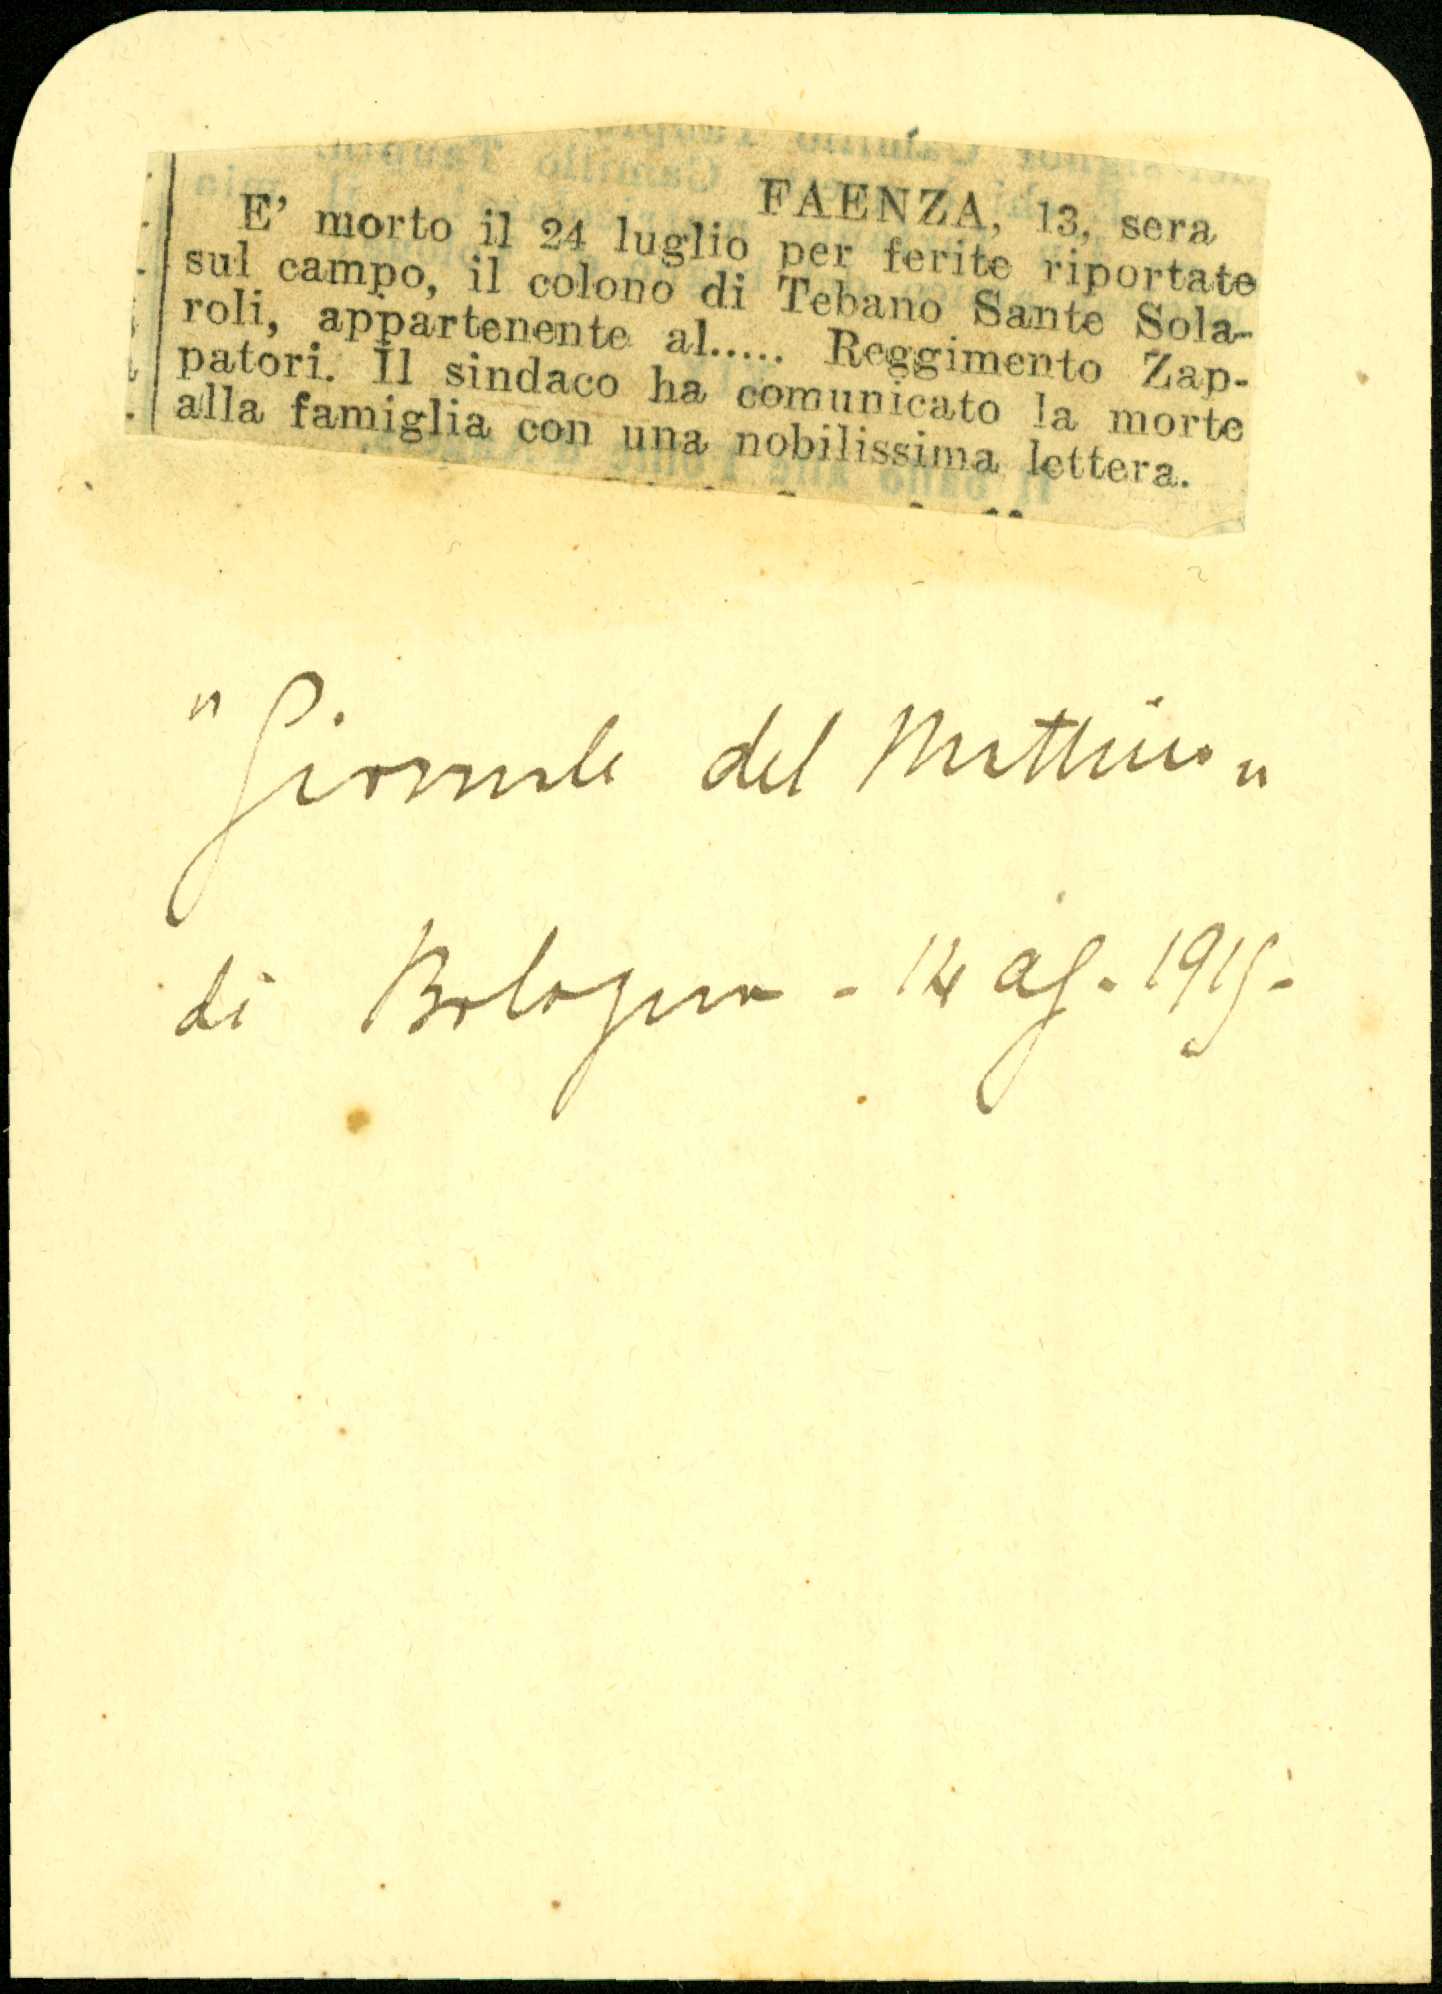 FAENZA, 13, sera
E' morto il 24 luglio per ferite riportate
sul campo, il colono di Tebano Sante Sola-
roli, appartenente al..... Reggimento Zap-
patori. Il sindaco ha comunicato la morte
alla famiglia con una nobilissima lettera.
"Giornale del Mattino"
di Bologna - 14 ag. 1915-